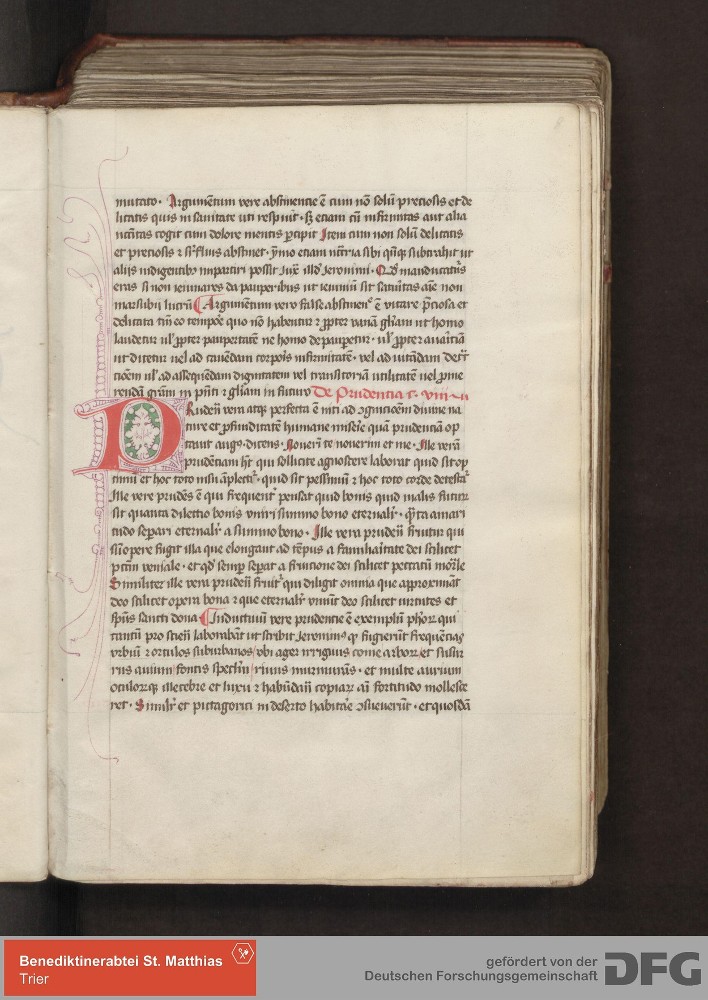 mutato. Argumentum vere abstinentie ē cum nō solū preciosis et de
licatis quis in sanitate uti respuit. sꝫ etiam cū infirmitas aut alia
necītas cogit cum dolore mentis ꝑcipit Item cum non solū delicatis
et preciosis ⁊ suꝑfluis abstinet. ymo etiam necīria sibi qn̄qꝫ subtrahit ut
alijs indigentibꝫ impartiri possit iux̄ illd̓ Jeronimi. Qd̓ manducatur̄s
eras si non ieiunares da pauperibus ut ieiuniū sit saturitas aīe non
marsubij lucrū Argumentum vero false abstinen̄e ē vitare p̄ciosa et
delicata tm̄ eo tempor̄e quo nō habentur ⁊ ꝓpter vanā glīam ut homo
laudetur ul̓ ꝓpter paupertatē ne homo depauperetur. ul̓ ꝓpter auariciā
ut ditetur uel ad cauēdam corporīs infirmitatē. vel ad uitādam
cōem ul̓ ad assequēdam dignitatem vel transitoriā utilitatē uel ꝓme
rendā grām in p̄nti ⁊ glīam in futuro De Prudentia c. viii
Pruden̄ vera atqꝫ perfecta ē niti ad ꝯgnicōem diuine na
ture et ꝓfunditatē humane miserie quā prudenciā op
tauit augs. dicens. Nouerī te nouerim et me. Ille verā
prudenciam hꝫ qui sollicite agnoscere laborat quid sit op
timū et hoc toto nisu āplecti. quid sit pessimū ⁊ hoc toto corde detestar̄
Ille vere prudēs ē qui frequenter pensat quid bonis quid malis futur̄
sit quanta dilectio bonis vniri summo bono eternalr̄. q̄ta amari
tudo separi eternalr̄ a summo bono. Ille vera pruden̄ fruitur qui
sūopere fugit illa que elongant ad tēpus a familiaritate dei scilicet
pctm̄ veniale. et qd̓ semꝑ seperat a fruicione dei scilicet peccatū mor̄le
Similiter ille vera pruden̄ fruitr̄ qui diligit omnia que approximāt
deo scilicet opera bona ⁊ que eternalr̄ vniūt deo scilicet virtutes et
spūs sancti dona Inductiuū vere prudencie ē exemplū ph̓or̄ qui
tantū pro scien̄ laborabāt ut scribit Jeronimus qꝫ fugierūt frequēcias
vrbiū ⁊ ortulos suburbanos, vbi ager irriguus come arbor̄ et susur
rus auium, fontis speclm̄, riuus murmurās. et multe aurium
oculorqꝫ illecebre et luxu ⁊ habūdan̄ copiar̄ aī fortitudo mollesce
ret. Similr̄ et pictagorici in deserto habitār̄e ꝯsueuerūt. et quosdā
Benediktinerabtei St. Matthias
Trier
gefördert von der
Deutschen Forschungsgemeinschaft
DFG